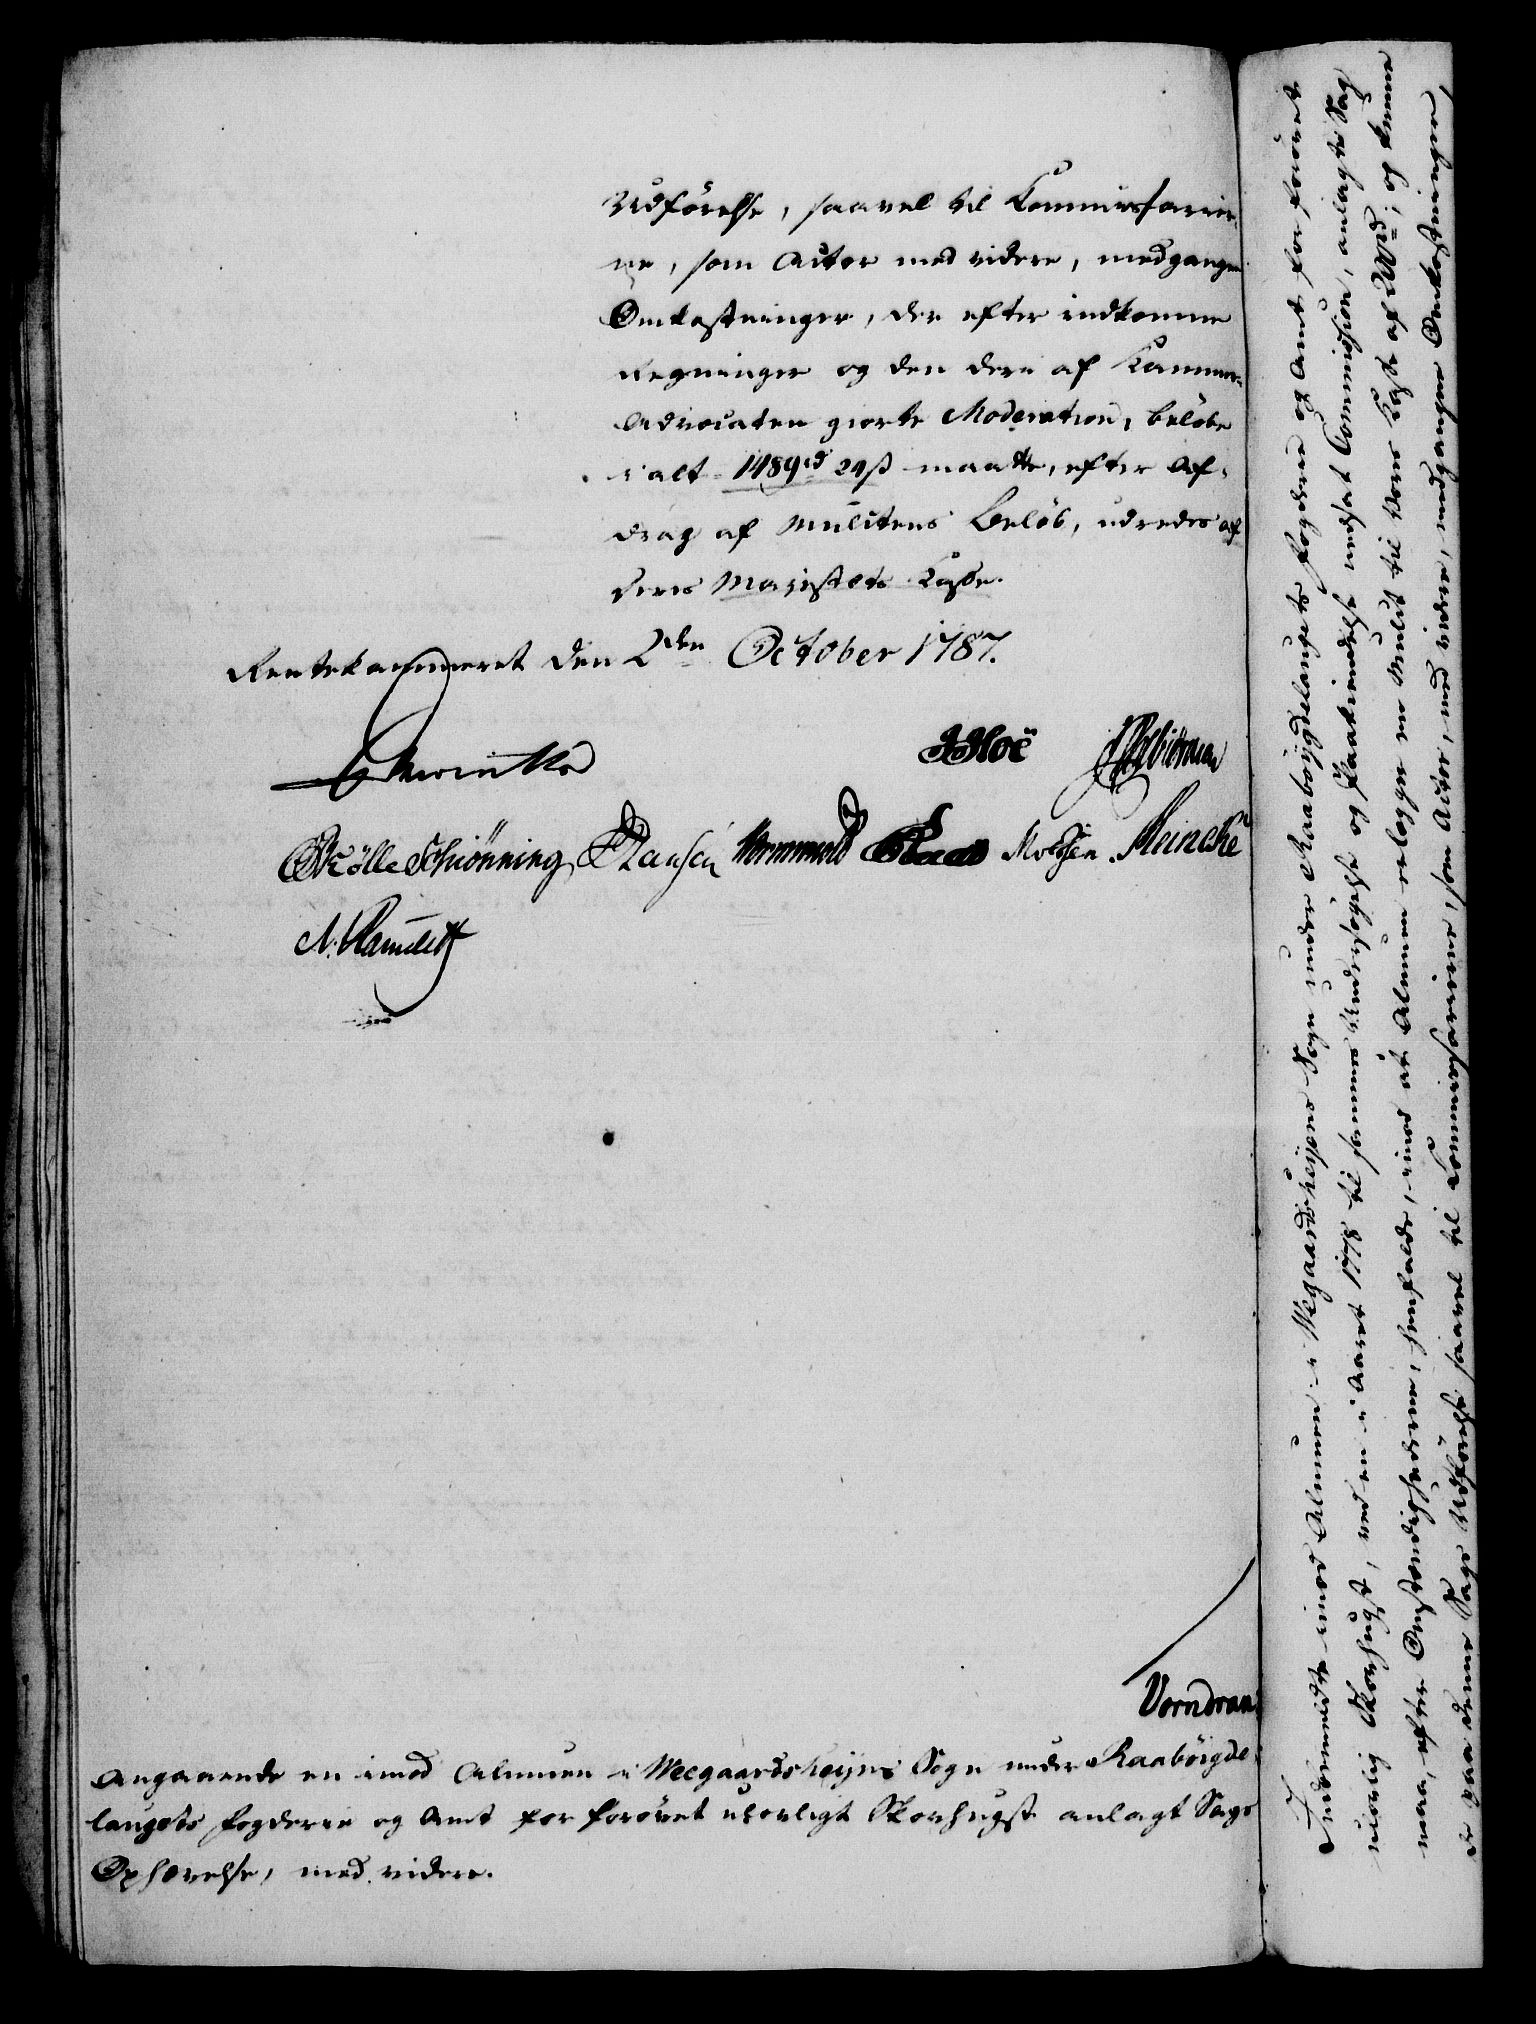 Udförelse, saavel til Commissarier-
ne, som Actor med videre, medgangne
Omkostninger, der efter indkomne
Regninger og den deri af Kammer-
Advocaten giorte Moderation, beløbe
i alt 1489 rd 24 ß maatte, efter Af-
drag af Mulctens Beløb, udredes af
Deres Majestæts Casse.
Rentekammeret den 2den October 1787.
JHoë
Schiönning Hansen Wormskiold Meincke
N. Ramdett
Vorndran
Angaaende en imod Almuen i Weegaardsheyens Sogn under Raaböigde-
laugets Fogderie og Amt for forövet ulovligt Skovhugst anlagt Sags
Ophævelse, med videre.
Indbemeldte imod Almuen i Wegaardsheyens Sogn under Raaböygdelaugets Fogderie og Amt for forövet
ulovlig Skovhugst, ved en i Aaret 1778 til sammes Undersögelse og Paakiendelse nedsat Commission, anlagte Sag
maa, efter Omstændighederne, henfalde, imod at Almuen erlegger en Mulct til Vores Casse af 200 rd; og kunne
de paa denne Sags Udförelse saavel til Commissarierne, som Actor, med videre, medgangne Omkostninger,